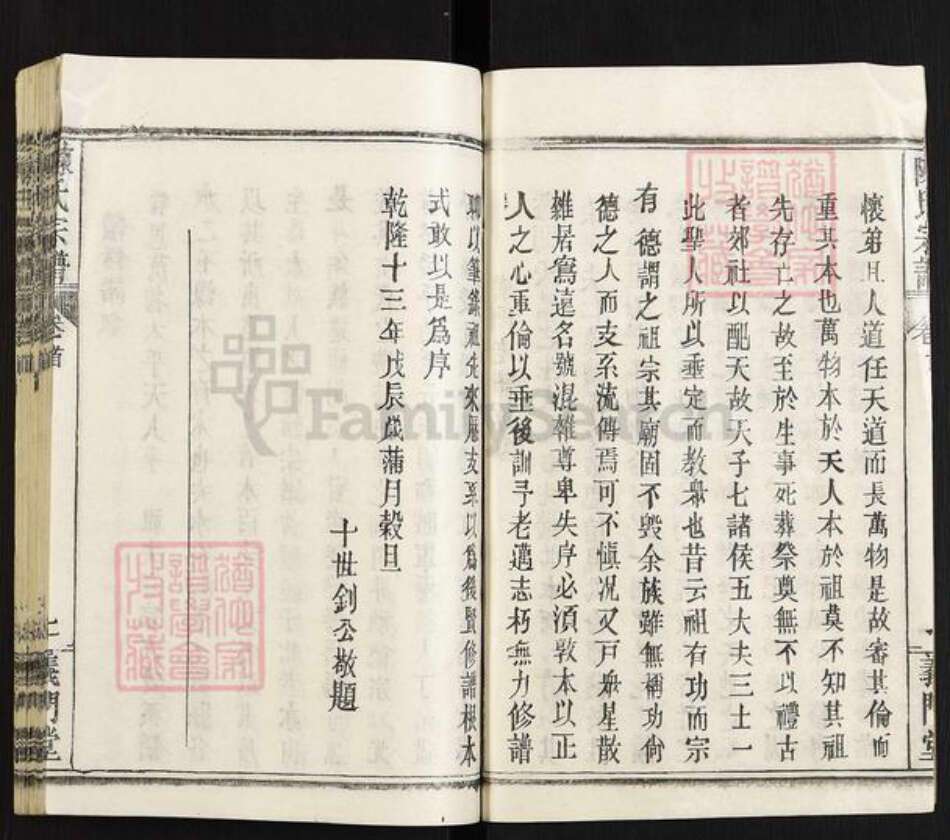 陳氏宗譜 卷首
義門堂
懷弟且人道任天道而長萬物是故審其倫而
重其本也萬物本於天人本於祖莫不知其祖
先存亡之故至於生事死葬祭奠無不以禮古
者郊社以配天故天子七諸侯五大夫三士一
此聖人所以垂定而教衆也昔云祖有功而宗
有德謂之祖宗其廟固不毀余族雖無稱功尙
德之人而支系流傳焉可不愼况又戶衆星散
雜居窵遠名號混雜尊卑失序必須敦本以正
人之心重倫以垂後訓予老邁志朽無力修譜
以筆錄祖先來歷支系以爲後賢修譜根本
式敢以是爲序
乾隆十三年戊辰歲蒲月穀旦
十世釗公敬題
陳氏宗譜 卷首
七 義門堂
FamilySearch